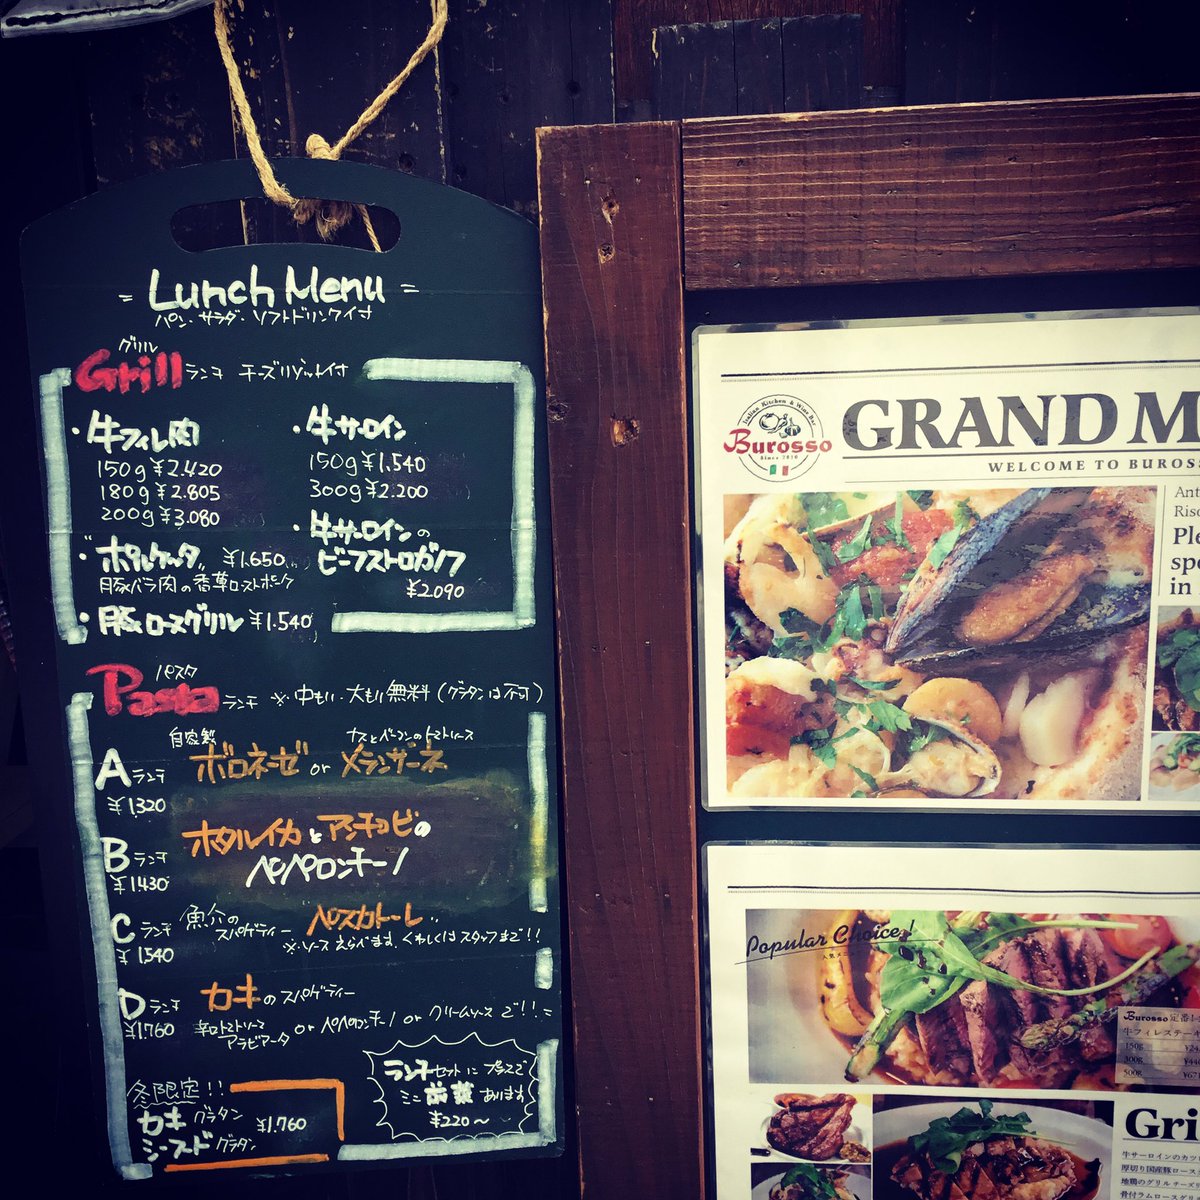 = Lunch Menu =
パン・サラダ・ソフトドリンク付
グリル
Grill ランチ チーズリゾット付
・牛フィレ肉
150g ¥2.420
180g ¥2.805
200g ¥3.080
"ポルケッタ" ¥1.650
豚バラ肉の香草ローストポーク
・豚ロースグリル ¥1.540
・牛サーロイン
150g ¥1.540
300g ¥2.200
・牛サーロインの
ビーフストロガノフ
¥2.090
パスタ
Pasta ランチ ※中もり・大もり無料(グラタンは不可)
自家製 ナスとベーコンのトマトソース
Aランチ ボロネーゼ or メランザーネ
¥1.320
ホタルイカとアンチョビの
Bランチ ペペロンチーノ
¥1430
Cランチ 魚介のスパゲティー "ペスカトーレ"
¥1540 ※ソースえらべます。くわしくはスタッフまで!!
Dランチ カキのスパゲティー
¥1.760 辛口トマトソース アラビアータ or ペペロンチーノ or クリームソースで!!
冬限定!!
カキグラタン ¥1.760
シーフードグラタン
ランチセットにプラスで
ミニ前菜あります
¥220〜
Italian Kitchen & Wine Bar
Burosso
Since 2010
GRAND M
WELCOME TO BUROSS
Ant
Riso
Ple
spe
in
Popular Choice!
Burosso 定番!
牛フィレステー
150g ¥24
300g ¥46
500g ¥671
Gri
牛サーロインのカツ
厚切り国産豚ロース
地鶏のグリル チーズリ
骨付ラムロース